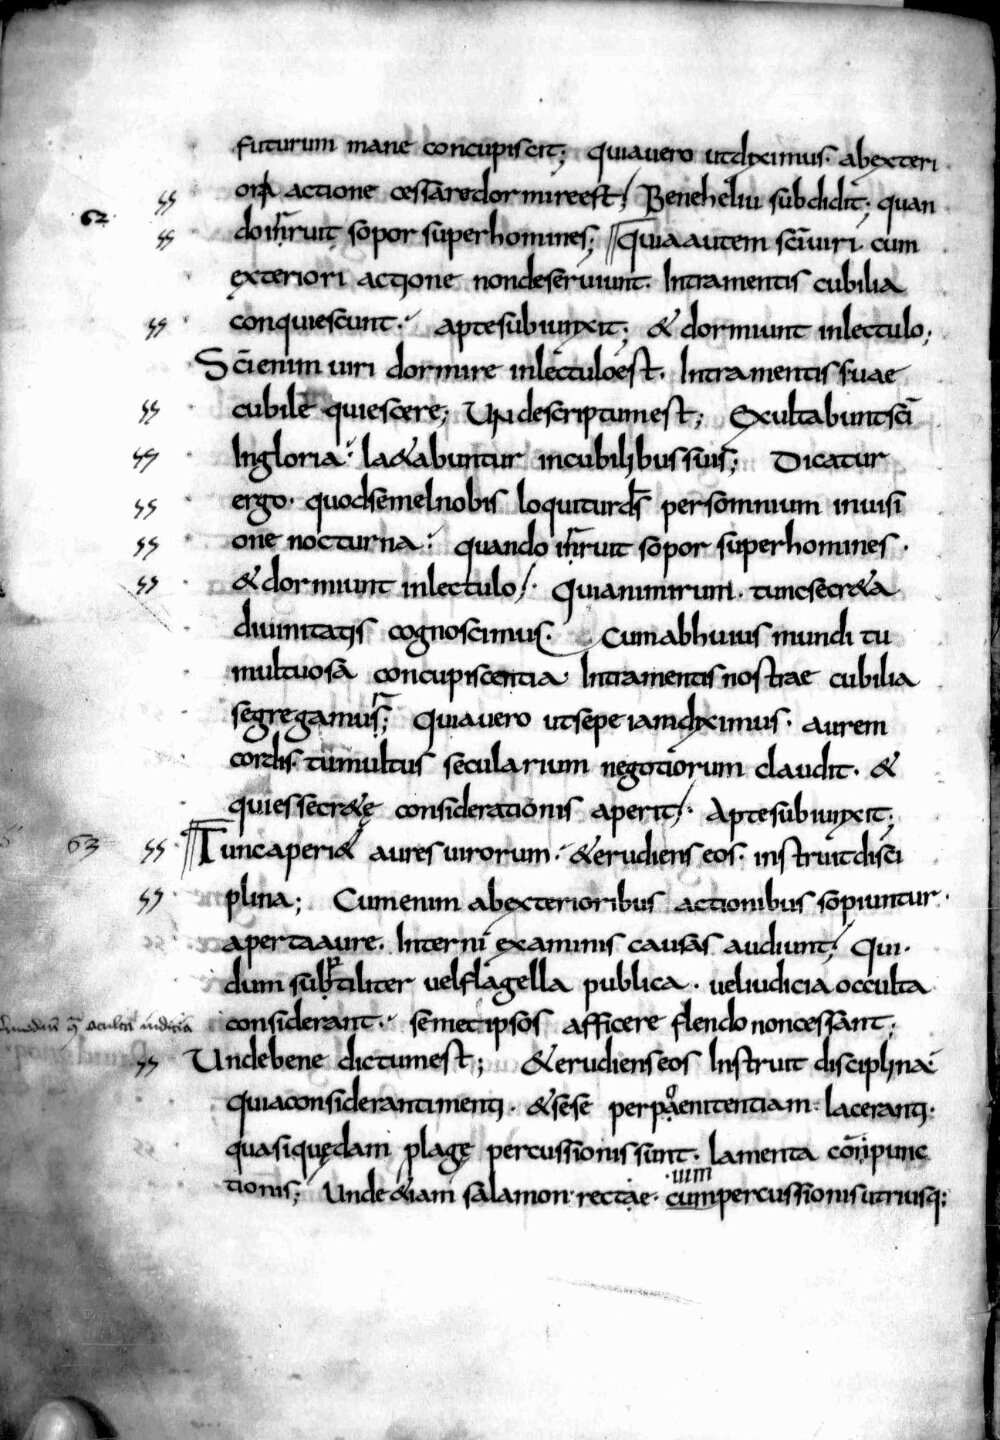 futurum mane concupiscit; quiauero utdiximus. abexteri
ori actione cessaredormireest; Beneheliu subdidit; quan
62 ss doinruit sopor superhomines; Quiaautem scīuiri cum
exteriori actione nondeseruiunt. Intramentis cubilia
ss conquiescunt. aptesubiunxit; & dormiunt inlectulo;
Scīenim uiri dormire inlectuloest. Intramentissuae
ss cubile quiescere; Undescriptumest; Exultabuntscī
ss Ingloria. la&abuntur incubilibussuis; Dicatur
ss ergo. quodsemelnobis loquiturds̄ persomnium inuisi
ss one nocturna. quando inruit sopor superhomines.
ss & dormiunt inlectulo. Quianimirum. tuncsecr&a
diuinitatis cognoscimus. Cumabhuius mundi tu
multuosa concupiscentia Intramentisnostrae cubilia
segregamus; Quiauero utsepe iamdiximus. aurem
cordis. tumultus secularium negotiorum claudit. &
quiessecr&ę considerationis aperit. Aptesubiunxit;
63 ss Tuncaperi& aures uirorum. &erudiens eos. instruitdisci
ss plina; Cumenim abexterioribus actionibus sopiuntur.
apertaaure. Interni examinis causas audiunt; Qui.
dum subtiliter uelflagella publica. ueliudicia occulta
considerant. semetipsos afficere flendo noncessant;
ss Undebene dictumest; &erudienseos Instruit disciplina
quiaconsiderantimenti. &sese perpaenitentiam laceranti.
quasiquędam plagę percussionissunt. lamenta conpunc
tionis; Unde&iam salamon rectae. cum uim percussionisutriusq;